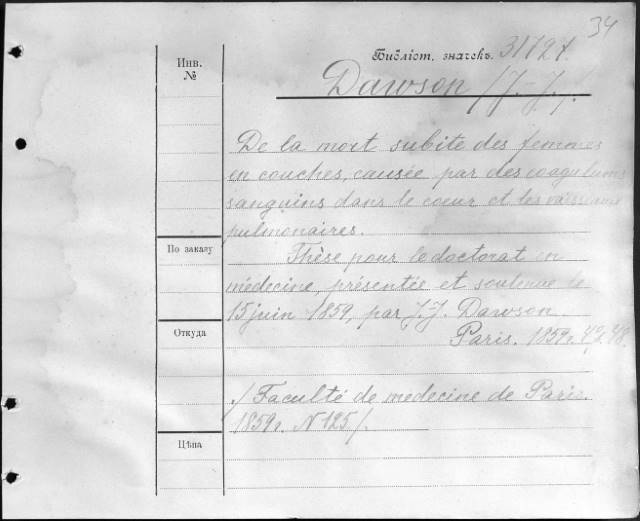 34
Инв. №
Библіот. значекъ. 31727.
Dawson /J.-J./
De la mort subite des femmes
en couches, causée par des coagulums
sanguins dans le coeur et les vaisseaux
pulmonaires.
По заказу
Thèse pour le doctorat en
médecine, présentée et soutenue le
15 juin 1859, par J. J. Dawson.
Откуда
Paris. 1859г. 4°. 48.
/Faculté de medecine de Paris.
1859г. N 125/.
Цѣна